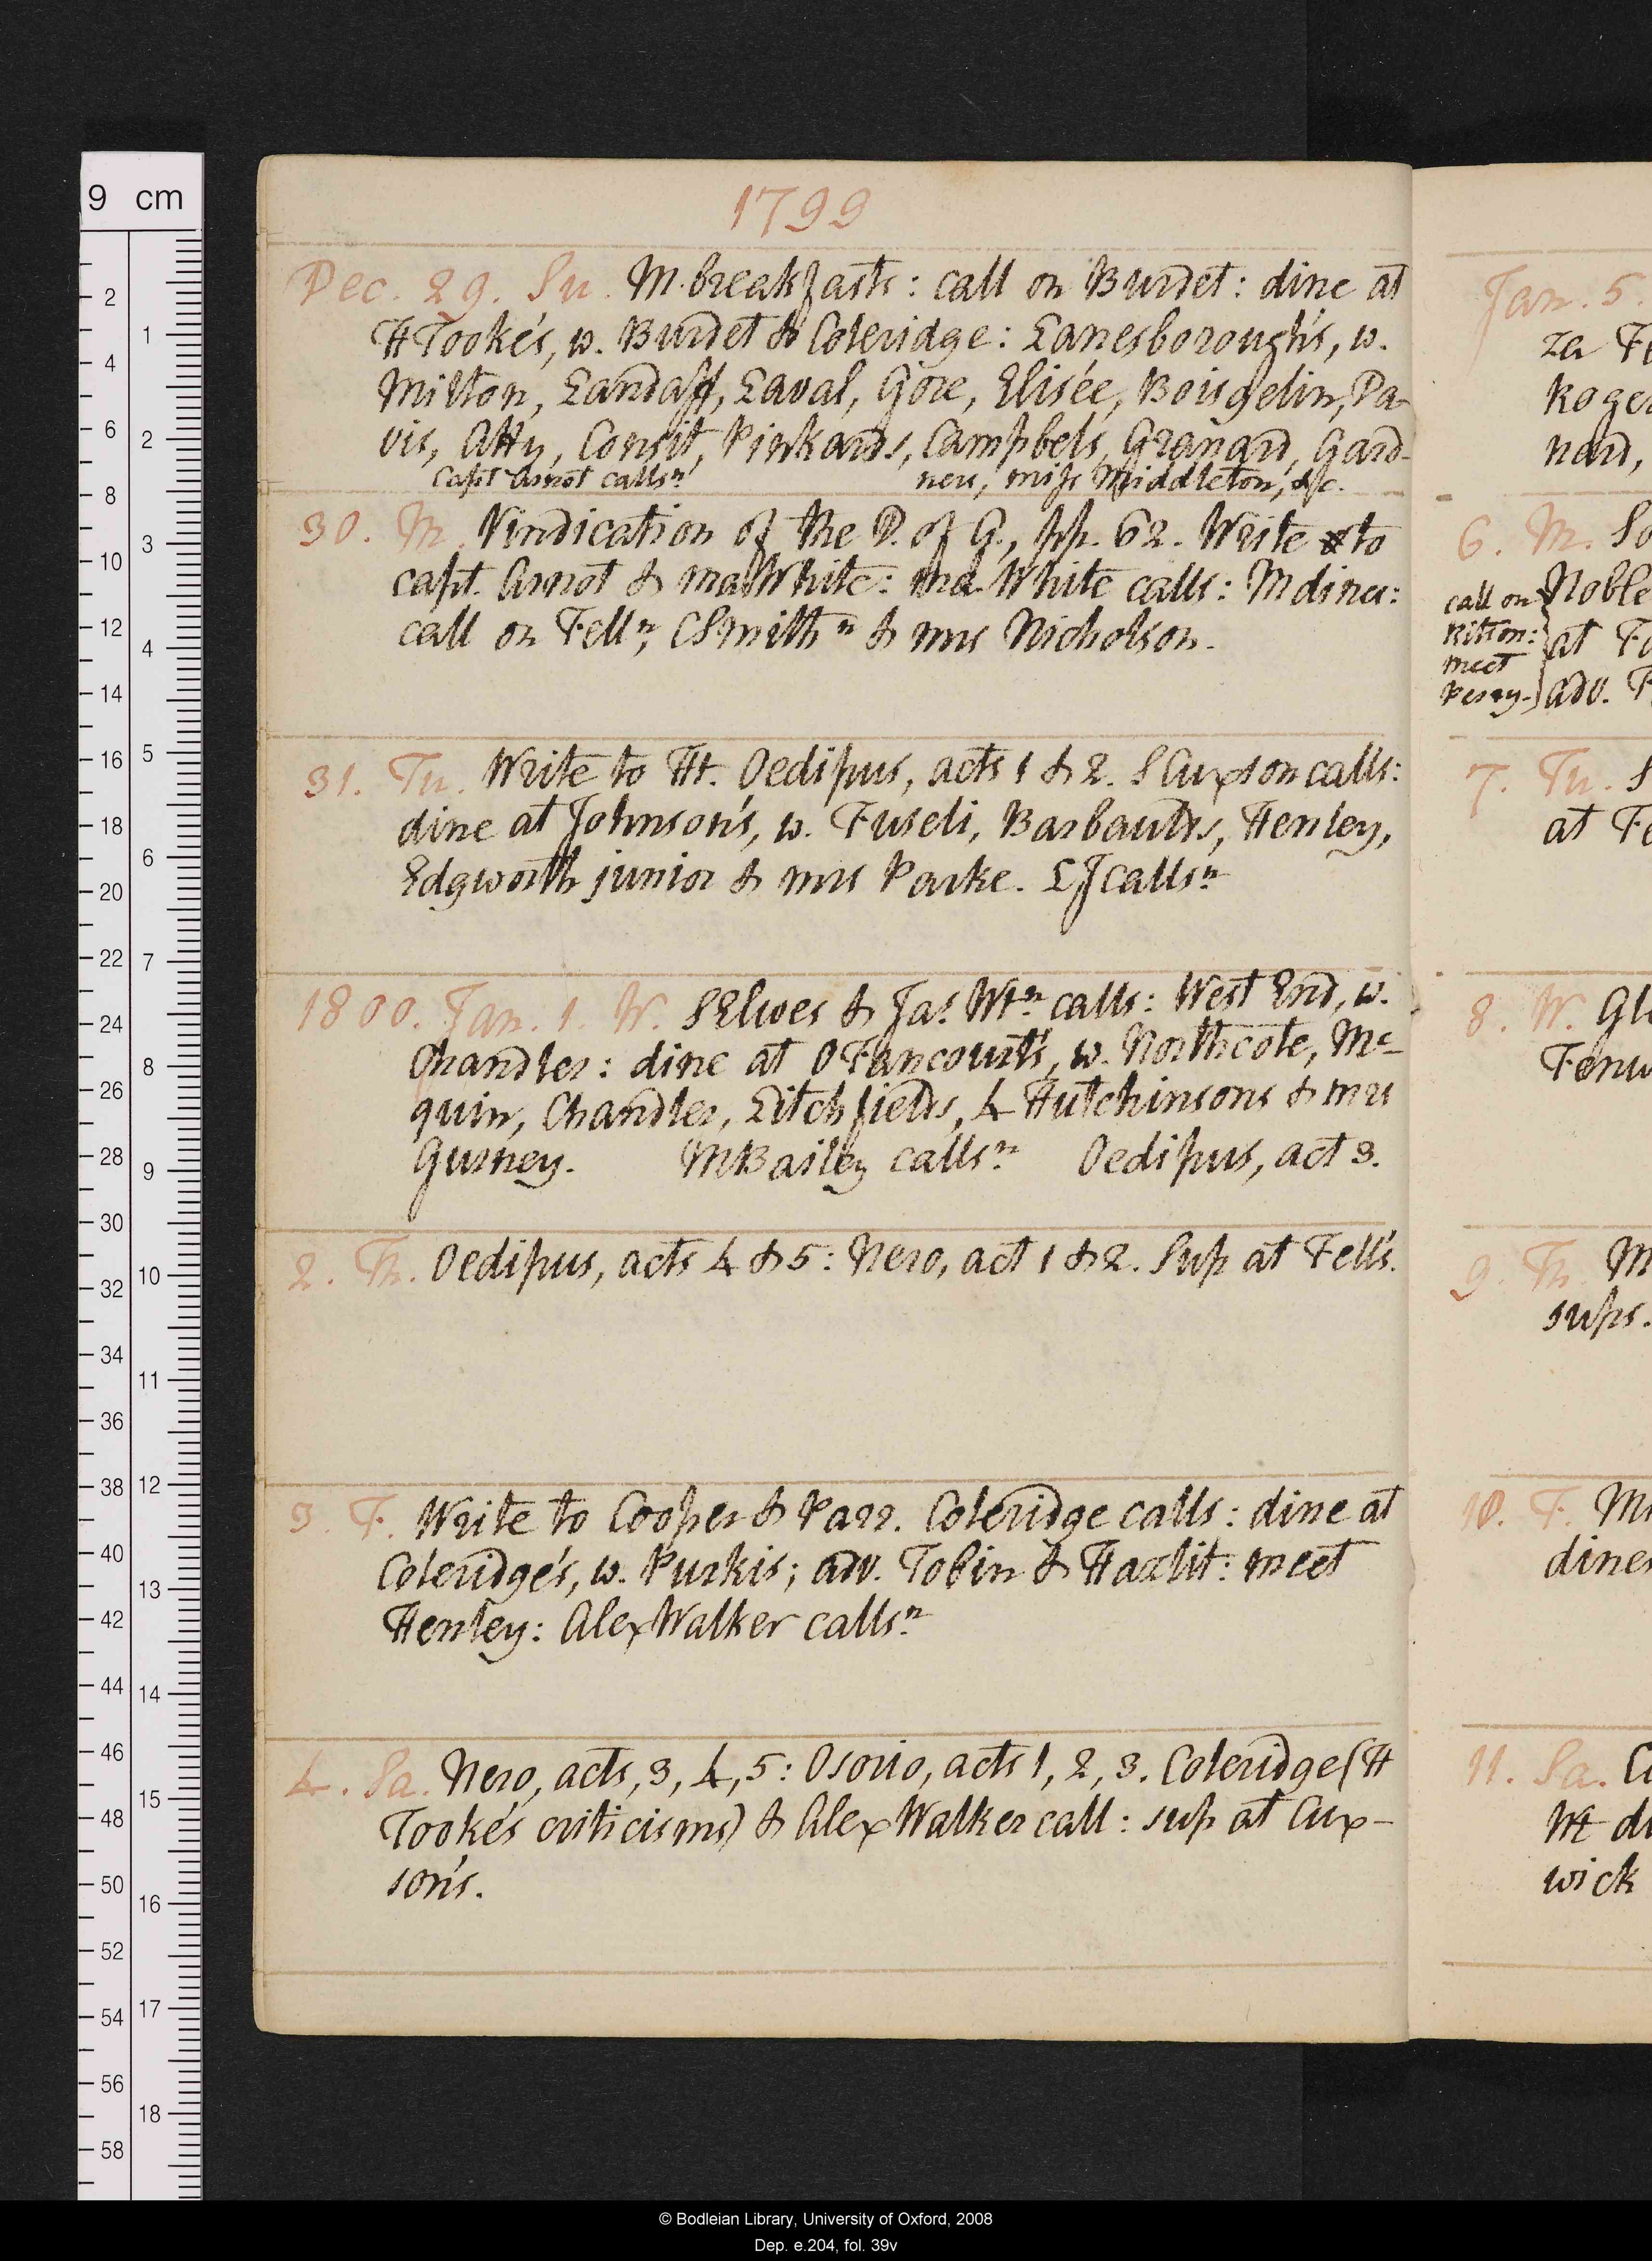 1799
Dec. 29. Su. M. breakfasts: call on Burdet: dine at
HTooke's, w. Burdet & Coleridge: Lanesborough's, w.
Milton, Landaff, Laval, Gore, Elisée, Boisgelin, Da-
vis, Atty, Consit, Pinkards, Campbels, Granard, Gard-
capt Arnot callsn
ners, miss Middleton, &c.
30. M. Vindication of the D. of G., pp. 62. Write to
capt. Arnot & White: White calls: M dines:
call on Felln, CSmithn & mrs Nicholson.
31. Tu. Write to Ht. Oedipus, acts 1 & 2. SCuxson calls:
dine at Johnson's, w. Fuseli, Barbaulds, Henley,
Edgworth junior & mrs Parke. LJ callsn
1800. Jan. 1. W. SElwes & Jas Wtn calls: West End, w.
Chandler: dine at OFancourt's, w. Northcote, Mc-
quin, Chandler, Litchfields, 4 Hutchinsons & mrs
Gurney. MBailey callsn Oedipus, act 3.
2. Th. Oedipus, acts 4 & 5: Nero, act 1 & 2. Sup at Fell's.
3. F. Write to Cooper & Parr. Coleridge calls: dine at
Coleridge's, w. Purkis; adv. Tobin & Hazlit: meet
Henley: Alex Walker callsn
4. Sa. Nero, acts, 3, 4, 5: Osorio, acts 1, 2, 3. Coleridge (H
Tooke's criticisms) & Alex Walker call: sup at Cux-
son's.
Jan. 5.
za F
Roger
nard,
6. M. So
call on
Ritson:
meet
Perry.
Noble
at Fo
adv. F
7. Tu. S
at Fe
8. W. Gl
Fenw
9. Th. M
sups.
10. F. M
dines
11. Sa. C
Wt di
wick
9 cm
2
4
6
8
10
12
14
16
18
20
22
24
26
28
30
32
34
36
38
40
42
44
46
48
50
52
54
56
58
1
2
3
4
5
6
7
8
9
10
11
12
13
14
15
16
17
18
© Bodleian Library, University of Oxford, 2008
Dep. e.204, fol. 39v